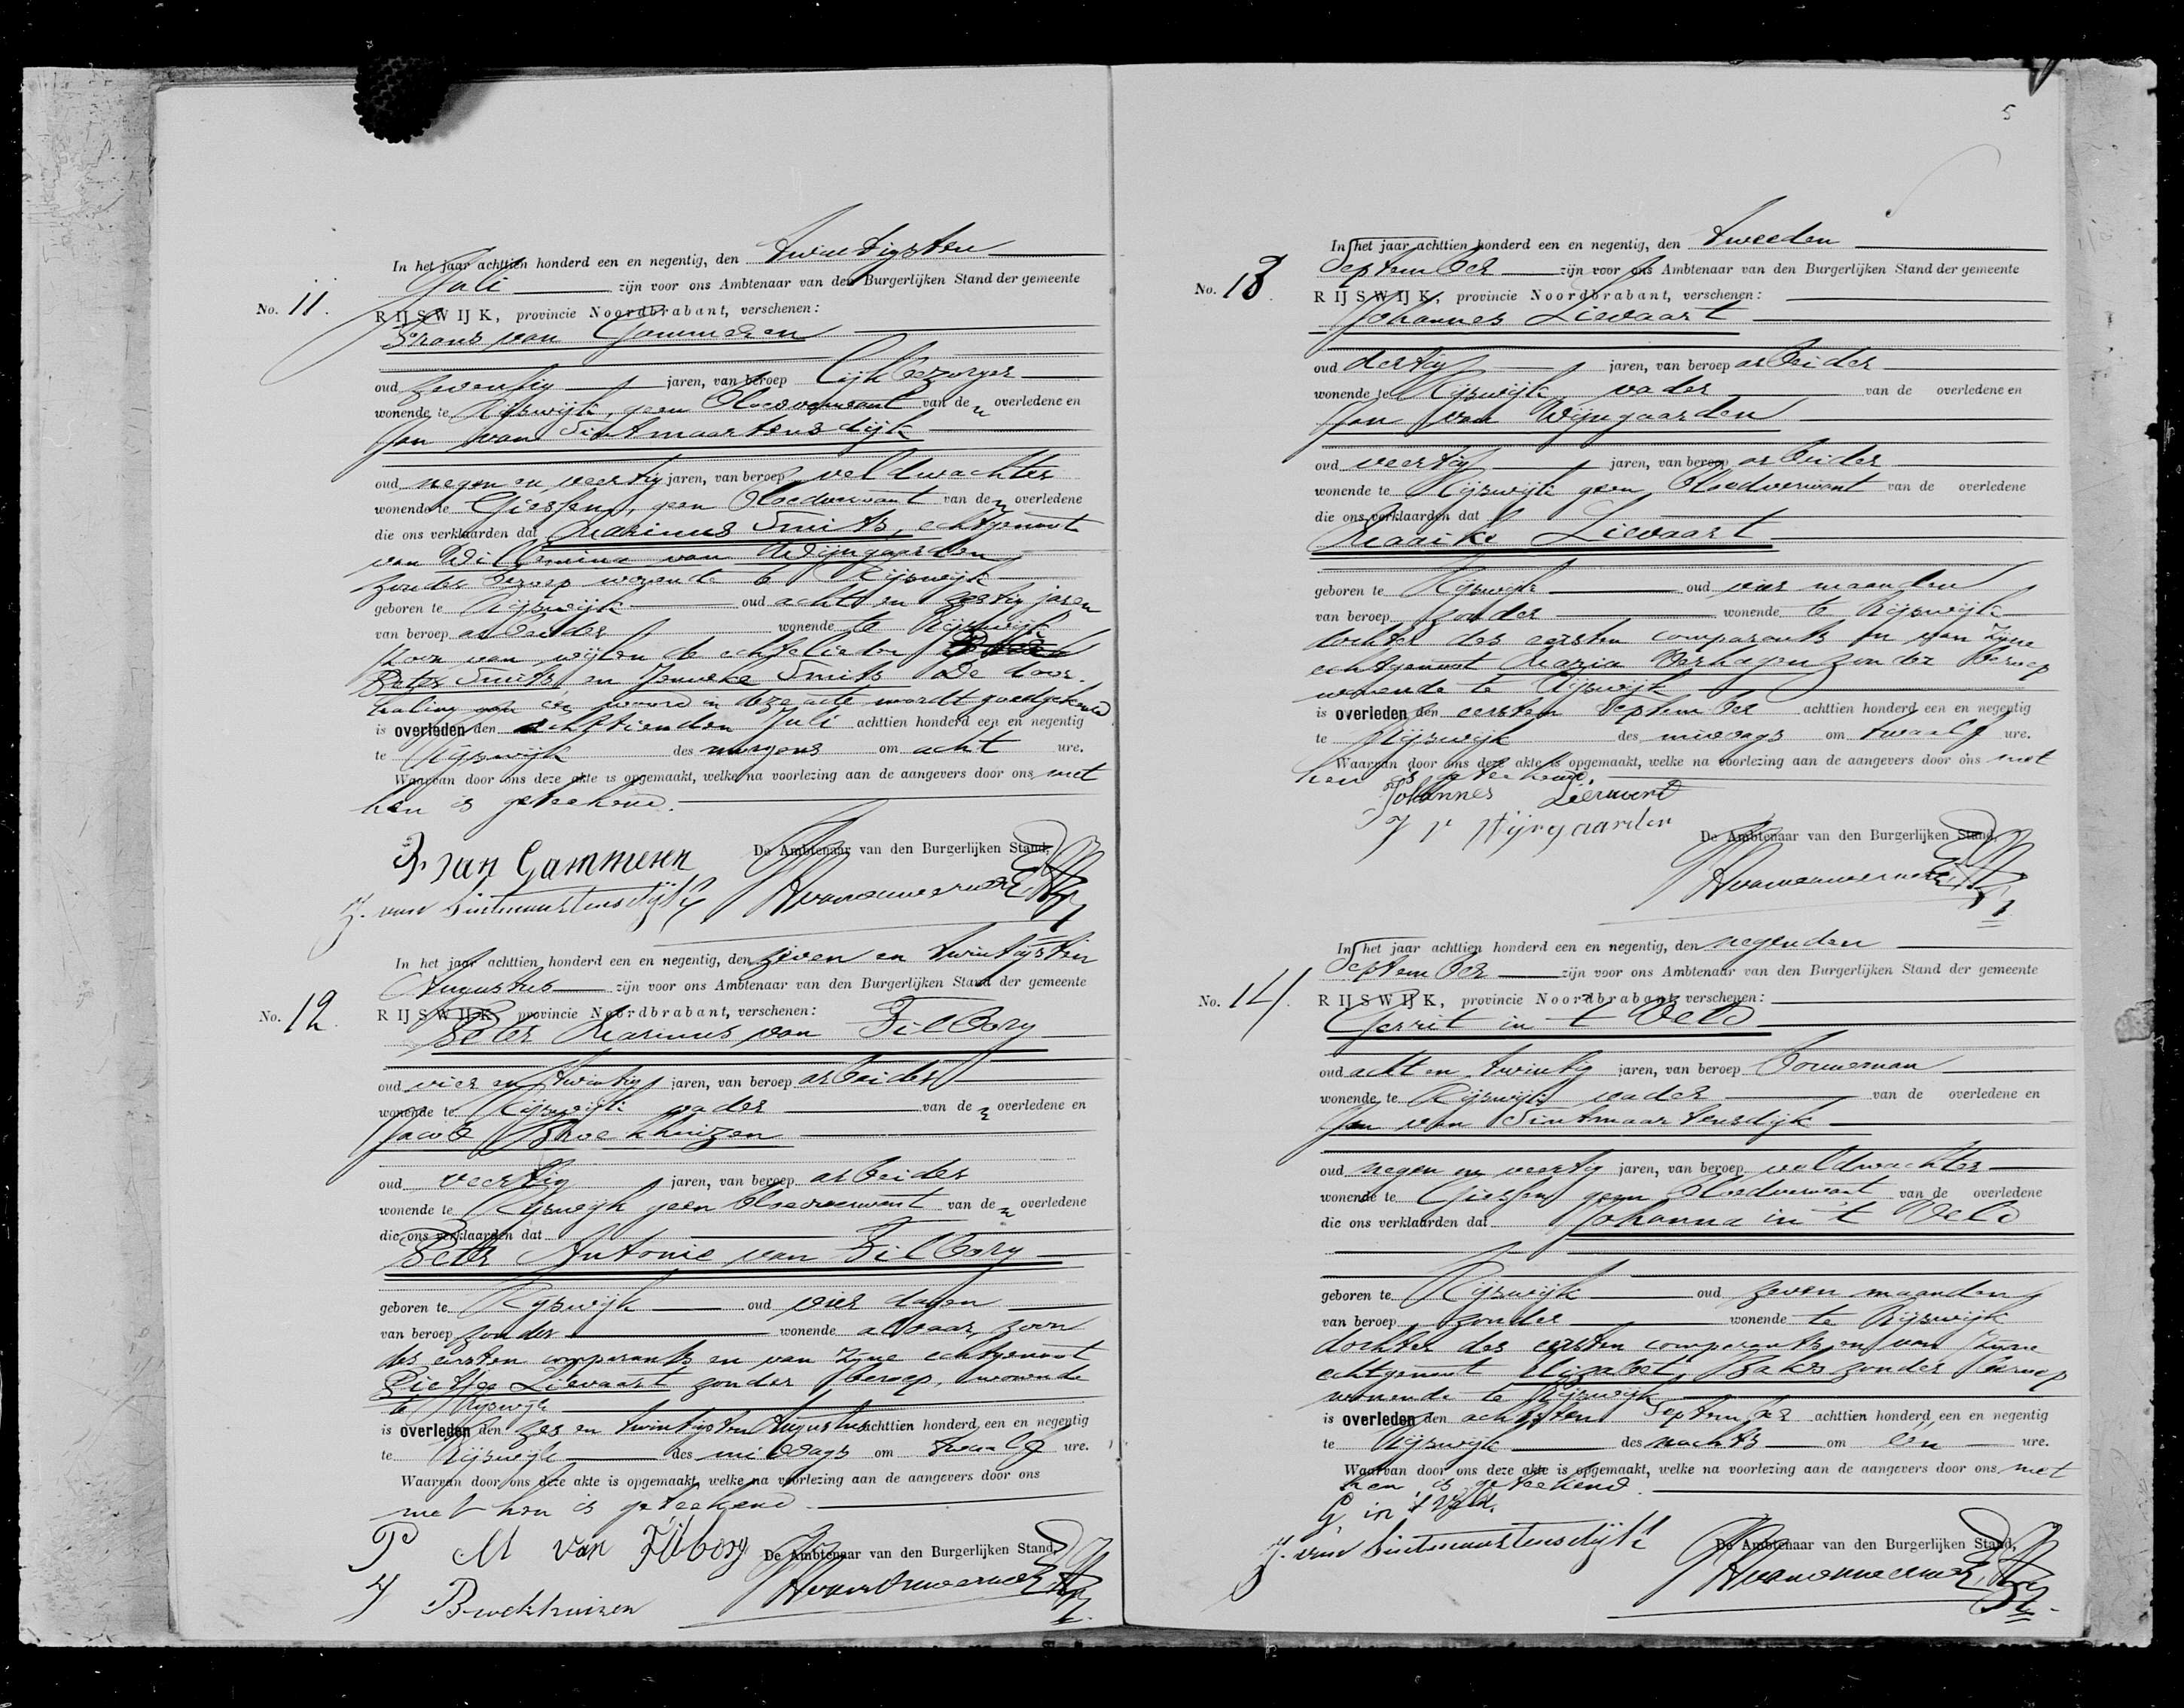 In het jaar achttien honderd een en negentig, den twintigsten
Juli zijn voor ons Ambtenaar van den Burgerlijken Stand der gemeente
No. 11. RIJSWIJK, provincie Noordbrabant, verschenen:
Frans van Gammeren
oud zeventig jaren, van beroep lijkbezorger
wonende te Rijswijk, geen bloedverwant van den overledene en
Jan van Sintmaartensdijk
oud negen en veertig jaren, van beroep veldwachter
wonende te Giessen, geen bloedverwant van den overledene
die ons verklaarden dat Marinus Smits, echtgenoot
van Willemina van Wijngaarden
zonder beroep wonende te Rijswijk
geboren te Rijswijk oud acht en zestig jaren
van beroep arbeider wonende te Rijswijk
zoon van wijlen de echtelieden
Peter Smits en Janneke Smits De door-
haling van één woord in deze acte wordt goedgekeurd
is overleden den achttienden Juli achttien honderd een en negentig
te Rijswijk des morgens om acht ure.
Waarvan door ons deze akte is opgemaakt, welke na voorlezing aan de aangevers door ons met
hen is geteekend.
F. van Gammeren De Ambtenaar van den Burgerlijken Stand,
J. van Sintmaartensdijk
In het jaar achttien honderd een en negentig, den zeven en twintigsten
Augustus zijn voor ons Ambtenaar van den Burgerlijken Stand der gemeente
No. 12. RIJSWIJK, provincie Noordbrabant, verschenen:
Peter Marinus van Tilborg
oud vier en twintig jaren, van beroep arbeider
wonende te Rijswijk vader van den overledene en
Jacob Broekhuizen
oud veertig jaren, van beroep arbeider
wonende te Rijswijk geen bloedverwant van den overledene
die ons verklaarden dat
Peter Antonie van Tilborg
geboren te Rijswijk oud vier dagen
van beroep zonder wonende aldaar, zoon
des eersten comparants en van zijne echtgenoot
Pietje Lievaart zonder beroep, wonende
te Rijswijk
is overleden den zes en twintigsten Augustus achttien honderd een en negentig
te Rijswijk des middags om twaalf ure.
Waarvan door ons deze akte is opgemaakt, welke na voorlezing aan de aangevers door ons
met hen is geteekend.
P M van Tilborg De Ambtenaar van den Burgerlijken Stand,
J Broekhuizen
5
In het jaar achttien honderd een en negentig, den tweeden
September zijn voor ons Ambtenaar van den Burgerlijken Stand der gemeente
No. 13. RIJSWIJK, provincie Noordbrabant, verschenen:
Johannes Lievaart
oud dertig jaren, van beroep arbeider
wonende te Rijswijk vader van de overledene en
Jan van Wijngaarden
oud veertig jaren, van beroep arbeider
wonende te Rijswijk geen bloedverwant van de overledene
die ons verklaarden dat
Maaike Lievaart
geboren te Rijswijk oud vier maanden
van beroep zonder wonende te Rijswijk
dochter des eersten comparants en van zijne
echtgenoot Maria Verhagen zonder beroep
wonende te Rijswijk
is overleden den eersten September achttien honderd een en negentig
te Rijswijk des middags om twaalf ure.
Waarvan door ons deze akte is opgemaakt, welke na voorlezing aan de aangevers door ons met
hen is geteekend.
Johannes
J v Wijngaarden De Ambtenaar van den Burgerlijken Stand,
In het jaar achttien honderd een en negentig, den negenden
September zijn voor ons Ambtenaar van den Burgerlijken Stand der gemeente
No. 14. RIJSWIJK, provincie Noordbrabant, verschenen:
Gerrit in 't Veld
oud acht en twintig jaren, van beroep bouwman
wonende te Rijswijk vader van de overledene en
Jan van Sintmaartensdijk
oud negen en veertig jaren, van beroep veldwachter
wonende te Giessen geen bloedverwant van de overledene
die ons verklaarden dat Johanna in 't Veld
geboren te Rijswijk oud zeven maanden
van beroep zonder wonende te Rijswijk
dochter des eersten comparants en van zijne
echtgenoot Elizabet Bakker zonder beroep
wonende te Rijswijk
is overleden den achtsten September achttien honderd een en negentig
te Rijswijk des nachts om één ure.
Waarvan door ons deze akte is opgemaakt, welke na voorlezing aan de aangevers door ons met
hen is geteekend.
G. in 't Veld.
J. van Sintmaartensdijk De Ambtenaar van den Burgerlijken Stand,